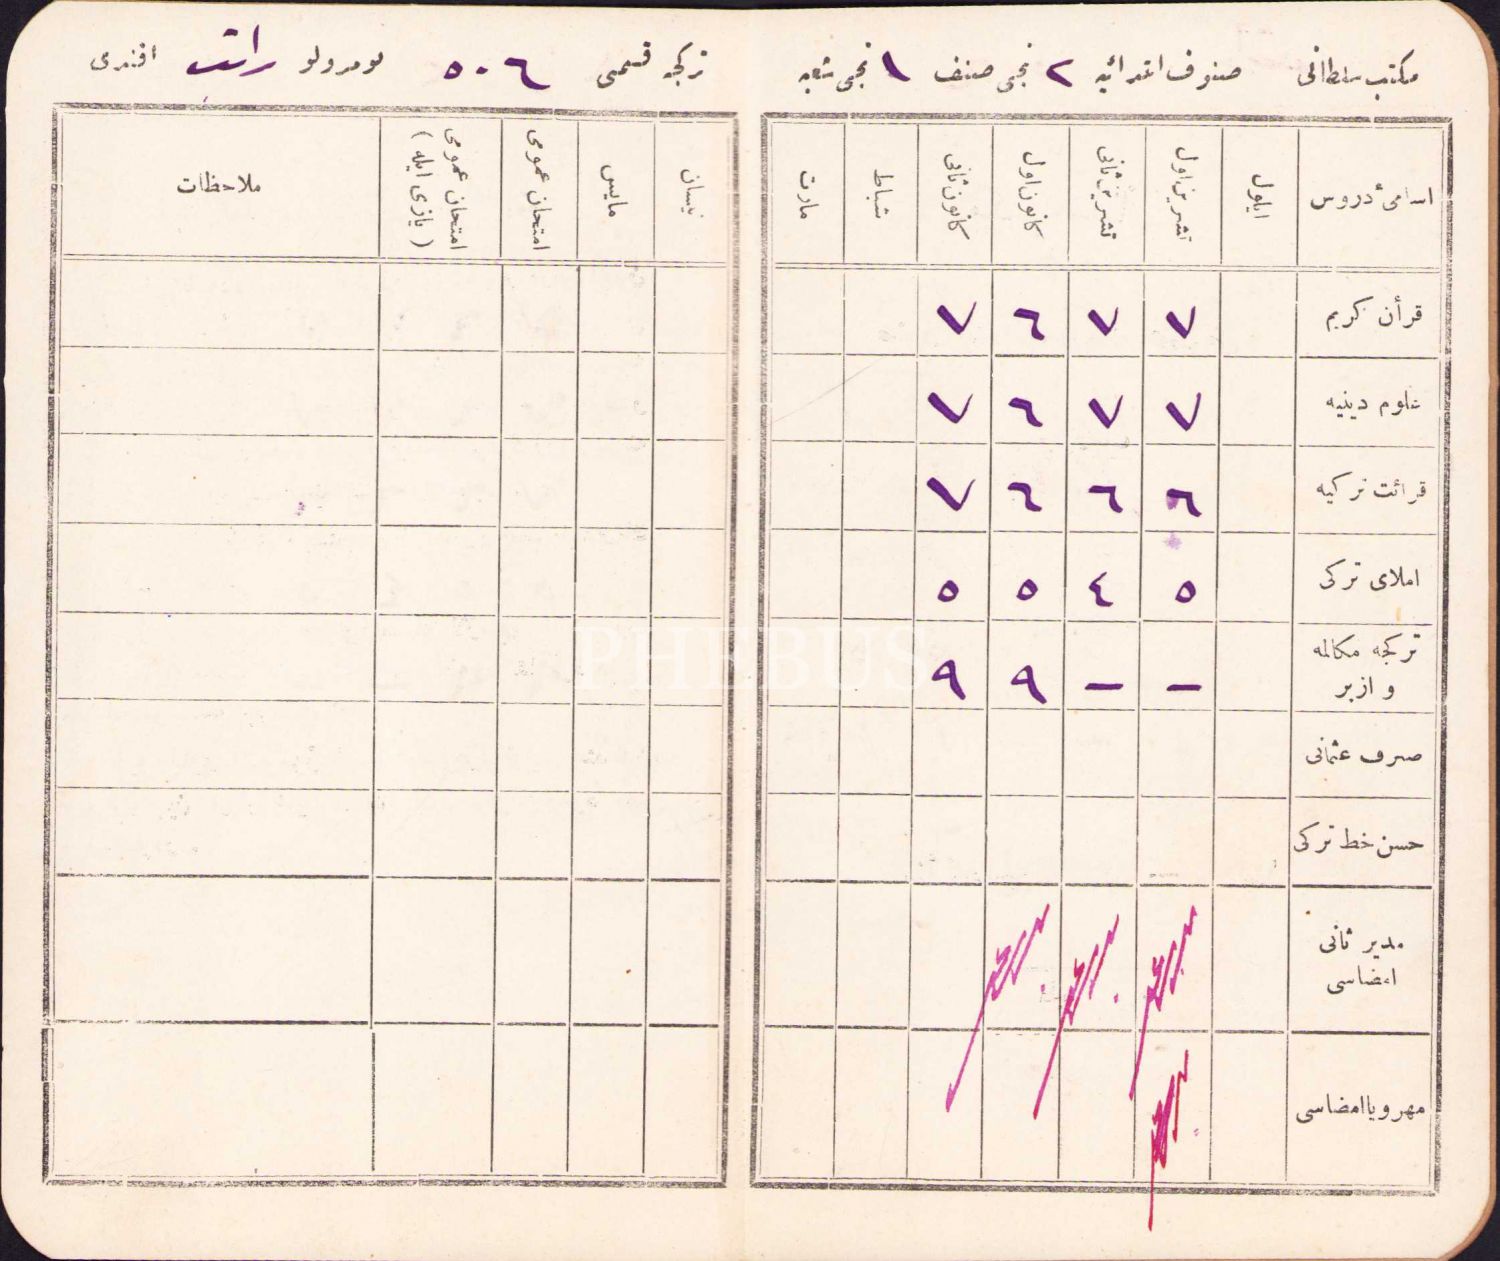 مكتب سلطانى صنوف ابتدائيه ٢ نجى صنف ١ نجى شعبه تركجه قسمى ٥٠٦ نومرولو افندى
اسامئ دروس ايلول تشرين اول تشرين ثانى كانون اول كانون ثانى شباط مارت نيسان مايس امتحان عمومى امتحان عمومى ( يازى ايله ) ملاحظات
قرأن كريم ٧ ٧ ٦ ٧
علوم دينيه ٧ ٧ ٦ ٧
قرائت تركيه ٦ ٦ ٦ ٧
املاى تركى ٥ ٤ ٥ ٥
تركجه مكالمه
و ازبر — — ٩ ٩
صرف عثمانى
حسن خط تركى
مدير ثانى
امضاسى
مهر ويا امضاسى
PHEBUS